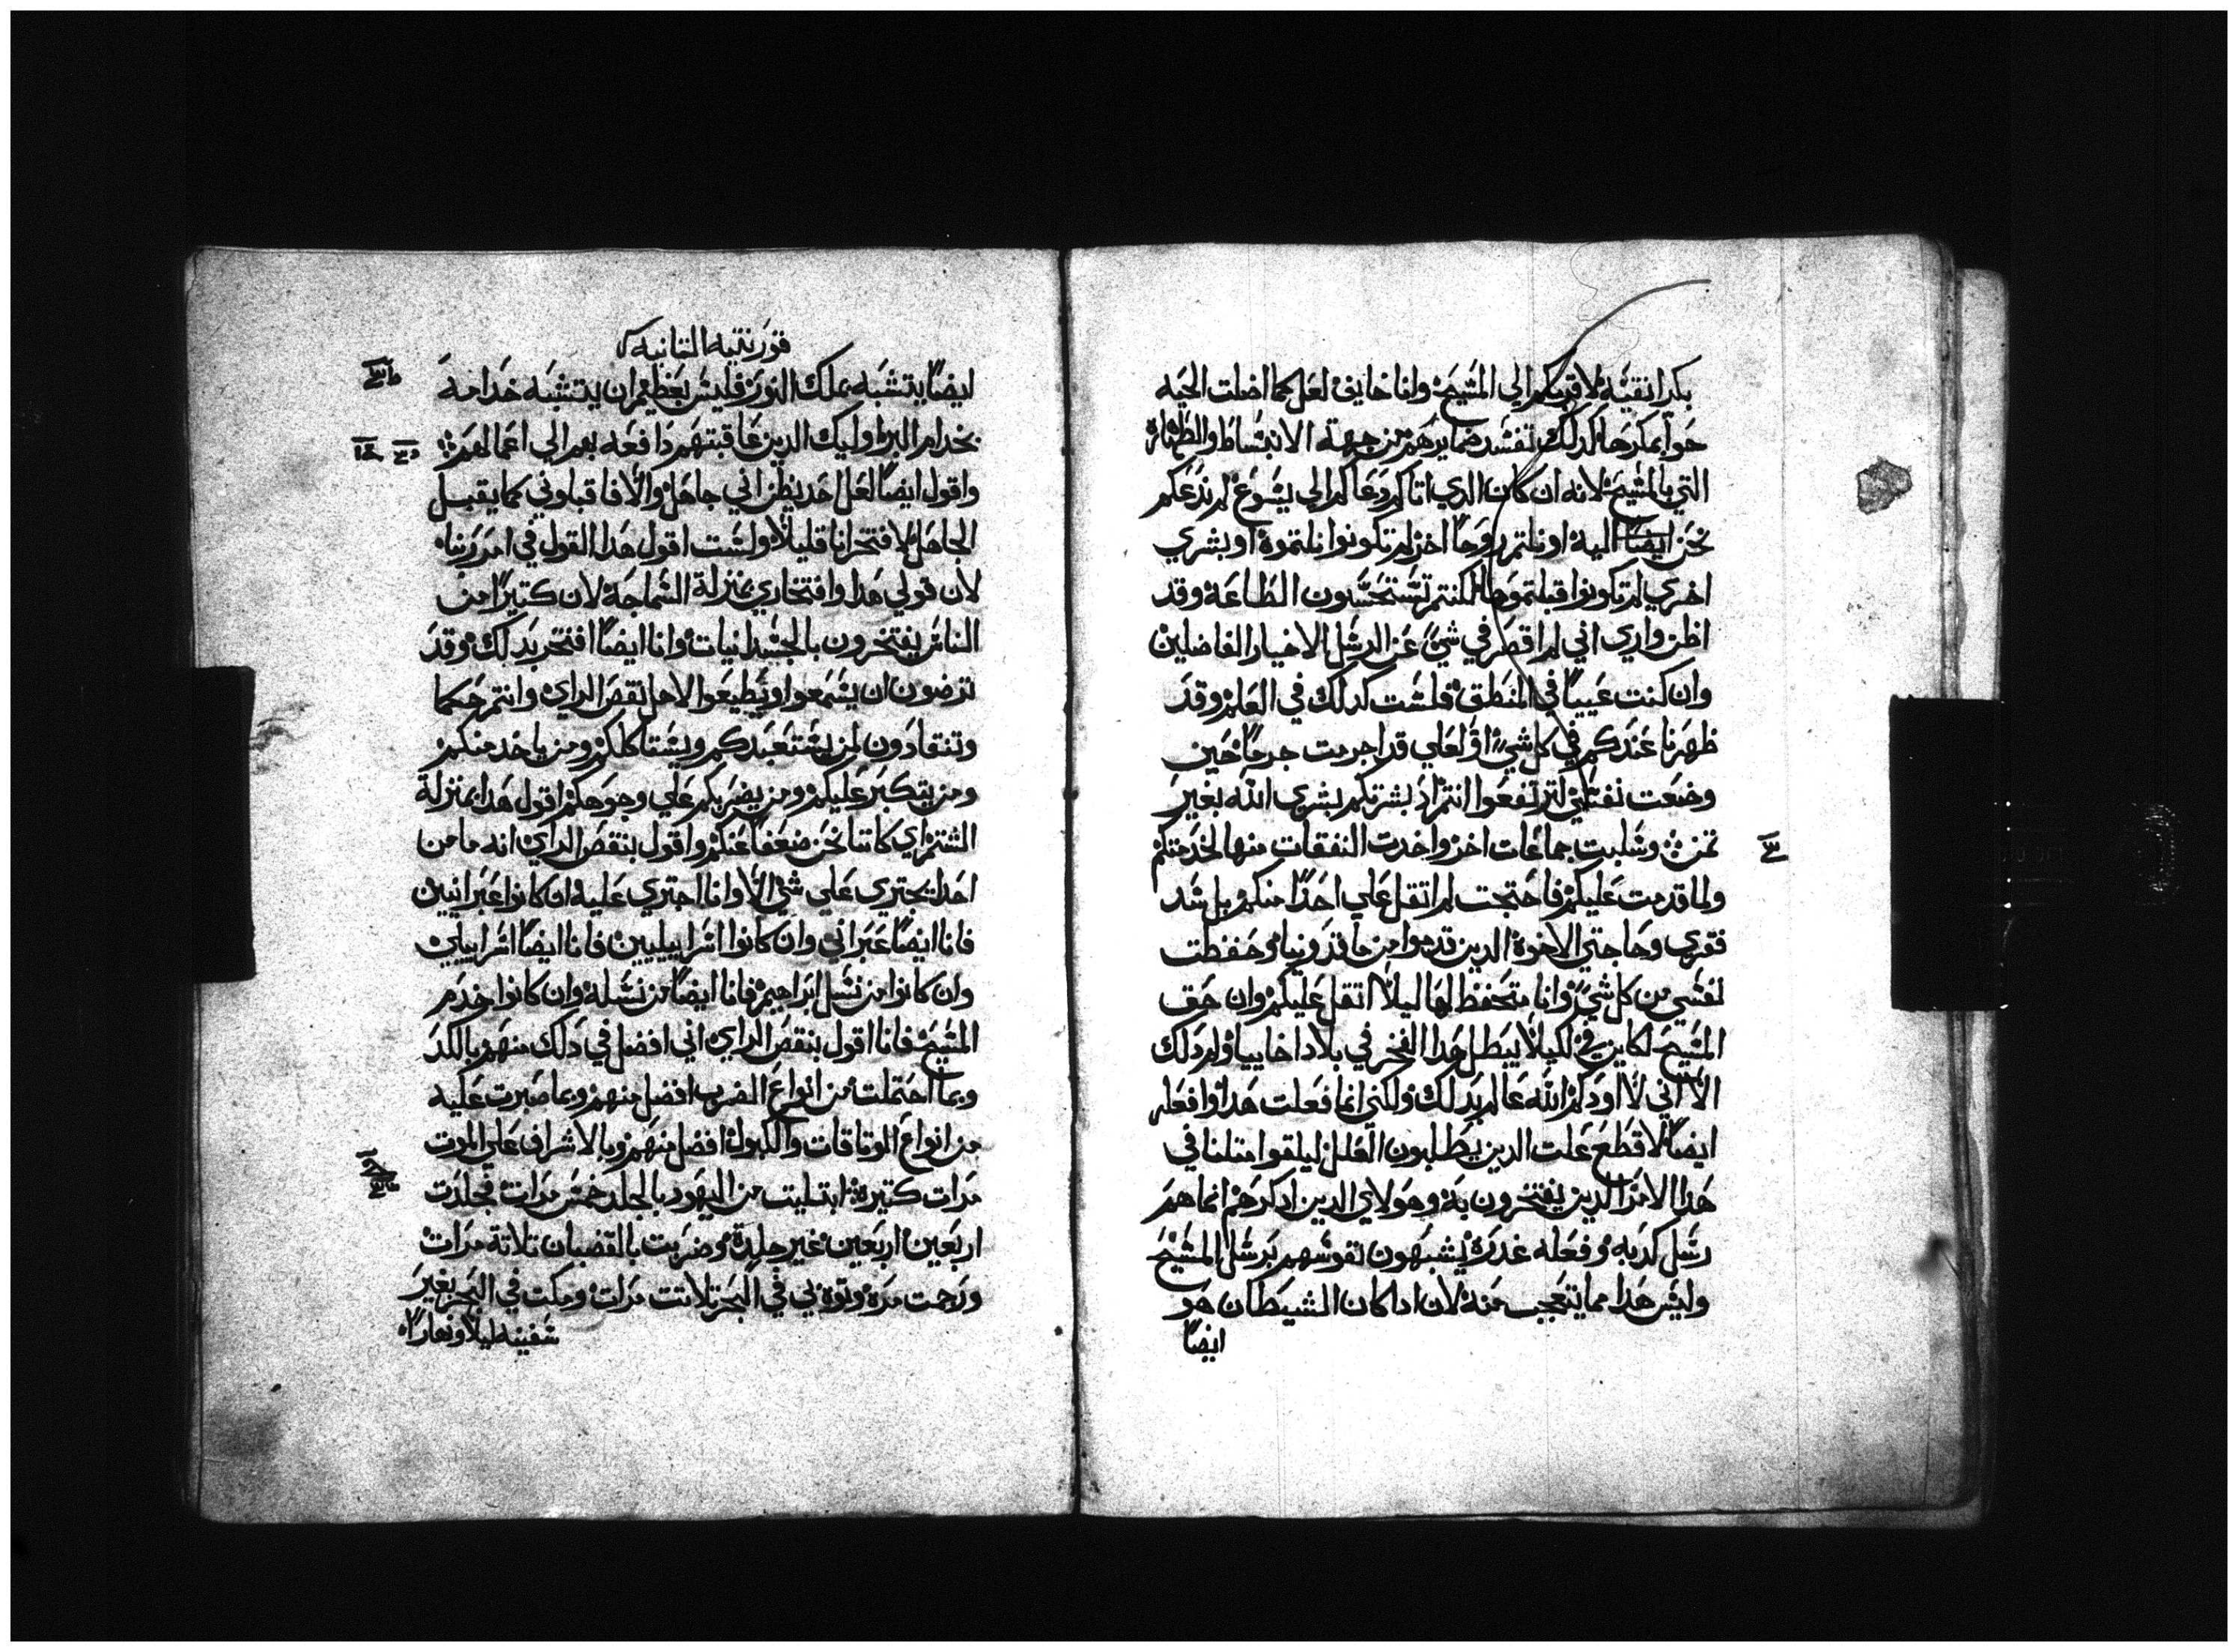 بكرا نقيَّه لاقربكم الي المسَّيح وانا خايف لعل كما اضلت الحيَه
حوا بمكرها كدلك تفسَد ضمايرهم من جهة الانبسَاط والطهاره
التي بالمسَّيح لانه ان كان الدي اتاكم دعاكم الي يسَوع لم ندعكم
نحن ايضاً اليه او نلتم روحاً اخر لم تكونوا نلتموه او بشري
اخري لم تكونوا قبلتموها لكنتم تسَتحسَنون الطاعة وقد
اظن واري اني لم اقصر في شي عن الرسَل الاخيار الفاضلين
وان كنت عيياً في المنطق فلسَت كدلك في العلم وقد
ظهرنا عندكم في كل شي او لعلي قد اجرمت جرماً حين
وضعت نفسَي لترتفعوا انتم اد بشرتكم بشري الله بغير
تمن وسَلبت جماعات اخر واخدت النفقات منها لخدمتكم
ولما قدمت عليكم فاحتجت لم اتقل علي احداً منكم بل سَد
فقري وحاجتي الاخوة الدين قدموا من ماقدونيا وحفظت
نفسَي من كل شي وانا متحفظ لها ليلا اتقل عليكم وان حق
المسَّيح لكاين في لكيلا يبطل هدا الفخر في بلاد اخاييا ولم دلك
الا اني لا اودكم الله عالم بدلك ولكني انما فعلت هدا وافعله
ايضاً لاقطع علت الدين يطلبون العلل ليلقوا متلنا في
هدا الامر الدين يفتخرون به وهولاي الدين ادكرهم انما هم
رسَل كدبه وفعله غدره يشبهون نفوسَهم برسَل المسَّيح
وليسَ هدا مما يتعجب منه لان ادا كان الشيطان هو
ايضاً
قورنتيه التانيه
ايضاً يتشبه بملك النور فليسَ بعظيم ان يتشبه خدامه
بخدام البر اوليك الدين عاقبتهم دافعه بهم الي اعمالهم
واقول ايضاً لعل احد يظن اني جاهل والا فاقبلوني كما يقبل
الجاهل لافتخر انا قليلا ولسَت اقول هدا القول في امر ربنا
لان قولي هدا وافتخاري بمنزلة السَماجة لان كتيراً من
الناسَ يفتخرون بالجسَدانيات وانا ايضاً افتخر بدلك وقد
ترضون ان يسَمعوا ويطيعوا لاهل نقص الراي وانتم حكما
وتنقادون لمن يسَتعبدكم ويسَتاكلكم ومن ياخد منكم
ومن يتكبر عليكم ومن يضربكم علي وجوهكم اقول هدا بمنزلة
الشتم اي كاننا نحن ضعفا عنكم واقول بنقص الراي انه ما من
احد يجتري علي شي الا وانا اجتري عليه ان كانوا عبرانيين
فانا ايضاً عبراني وان كانوا اسَراييليين فانا ايضاً اسَراييلي
وان كانوا من نسَل ابراهيم فانا ايضاً من نسَله وان كانوا خدم
المسَّيح فانا اقول بنقص الراي اني افضل في دلك منهم بالكد
وبما احتملت من انواع الضرب افضل منهم وبما صبرت عليه
من انواع الوتاقات والكبول افضل منهم وبالاشراف علي الموت
مرات كتيرة ابتليت من اليهود بالجلد خمسَ مرات فجلدت
اربعين اربعين غير جلدة وضربت بالقضبان تلاتة مرات
ورجمت مرة وتوه بي في البحر تلاتت مرات ومكت في البحر بغير
سَفينه ليلا ونهاراً